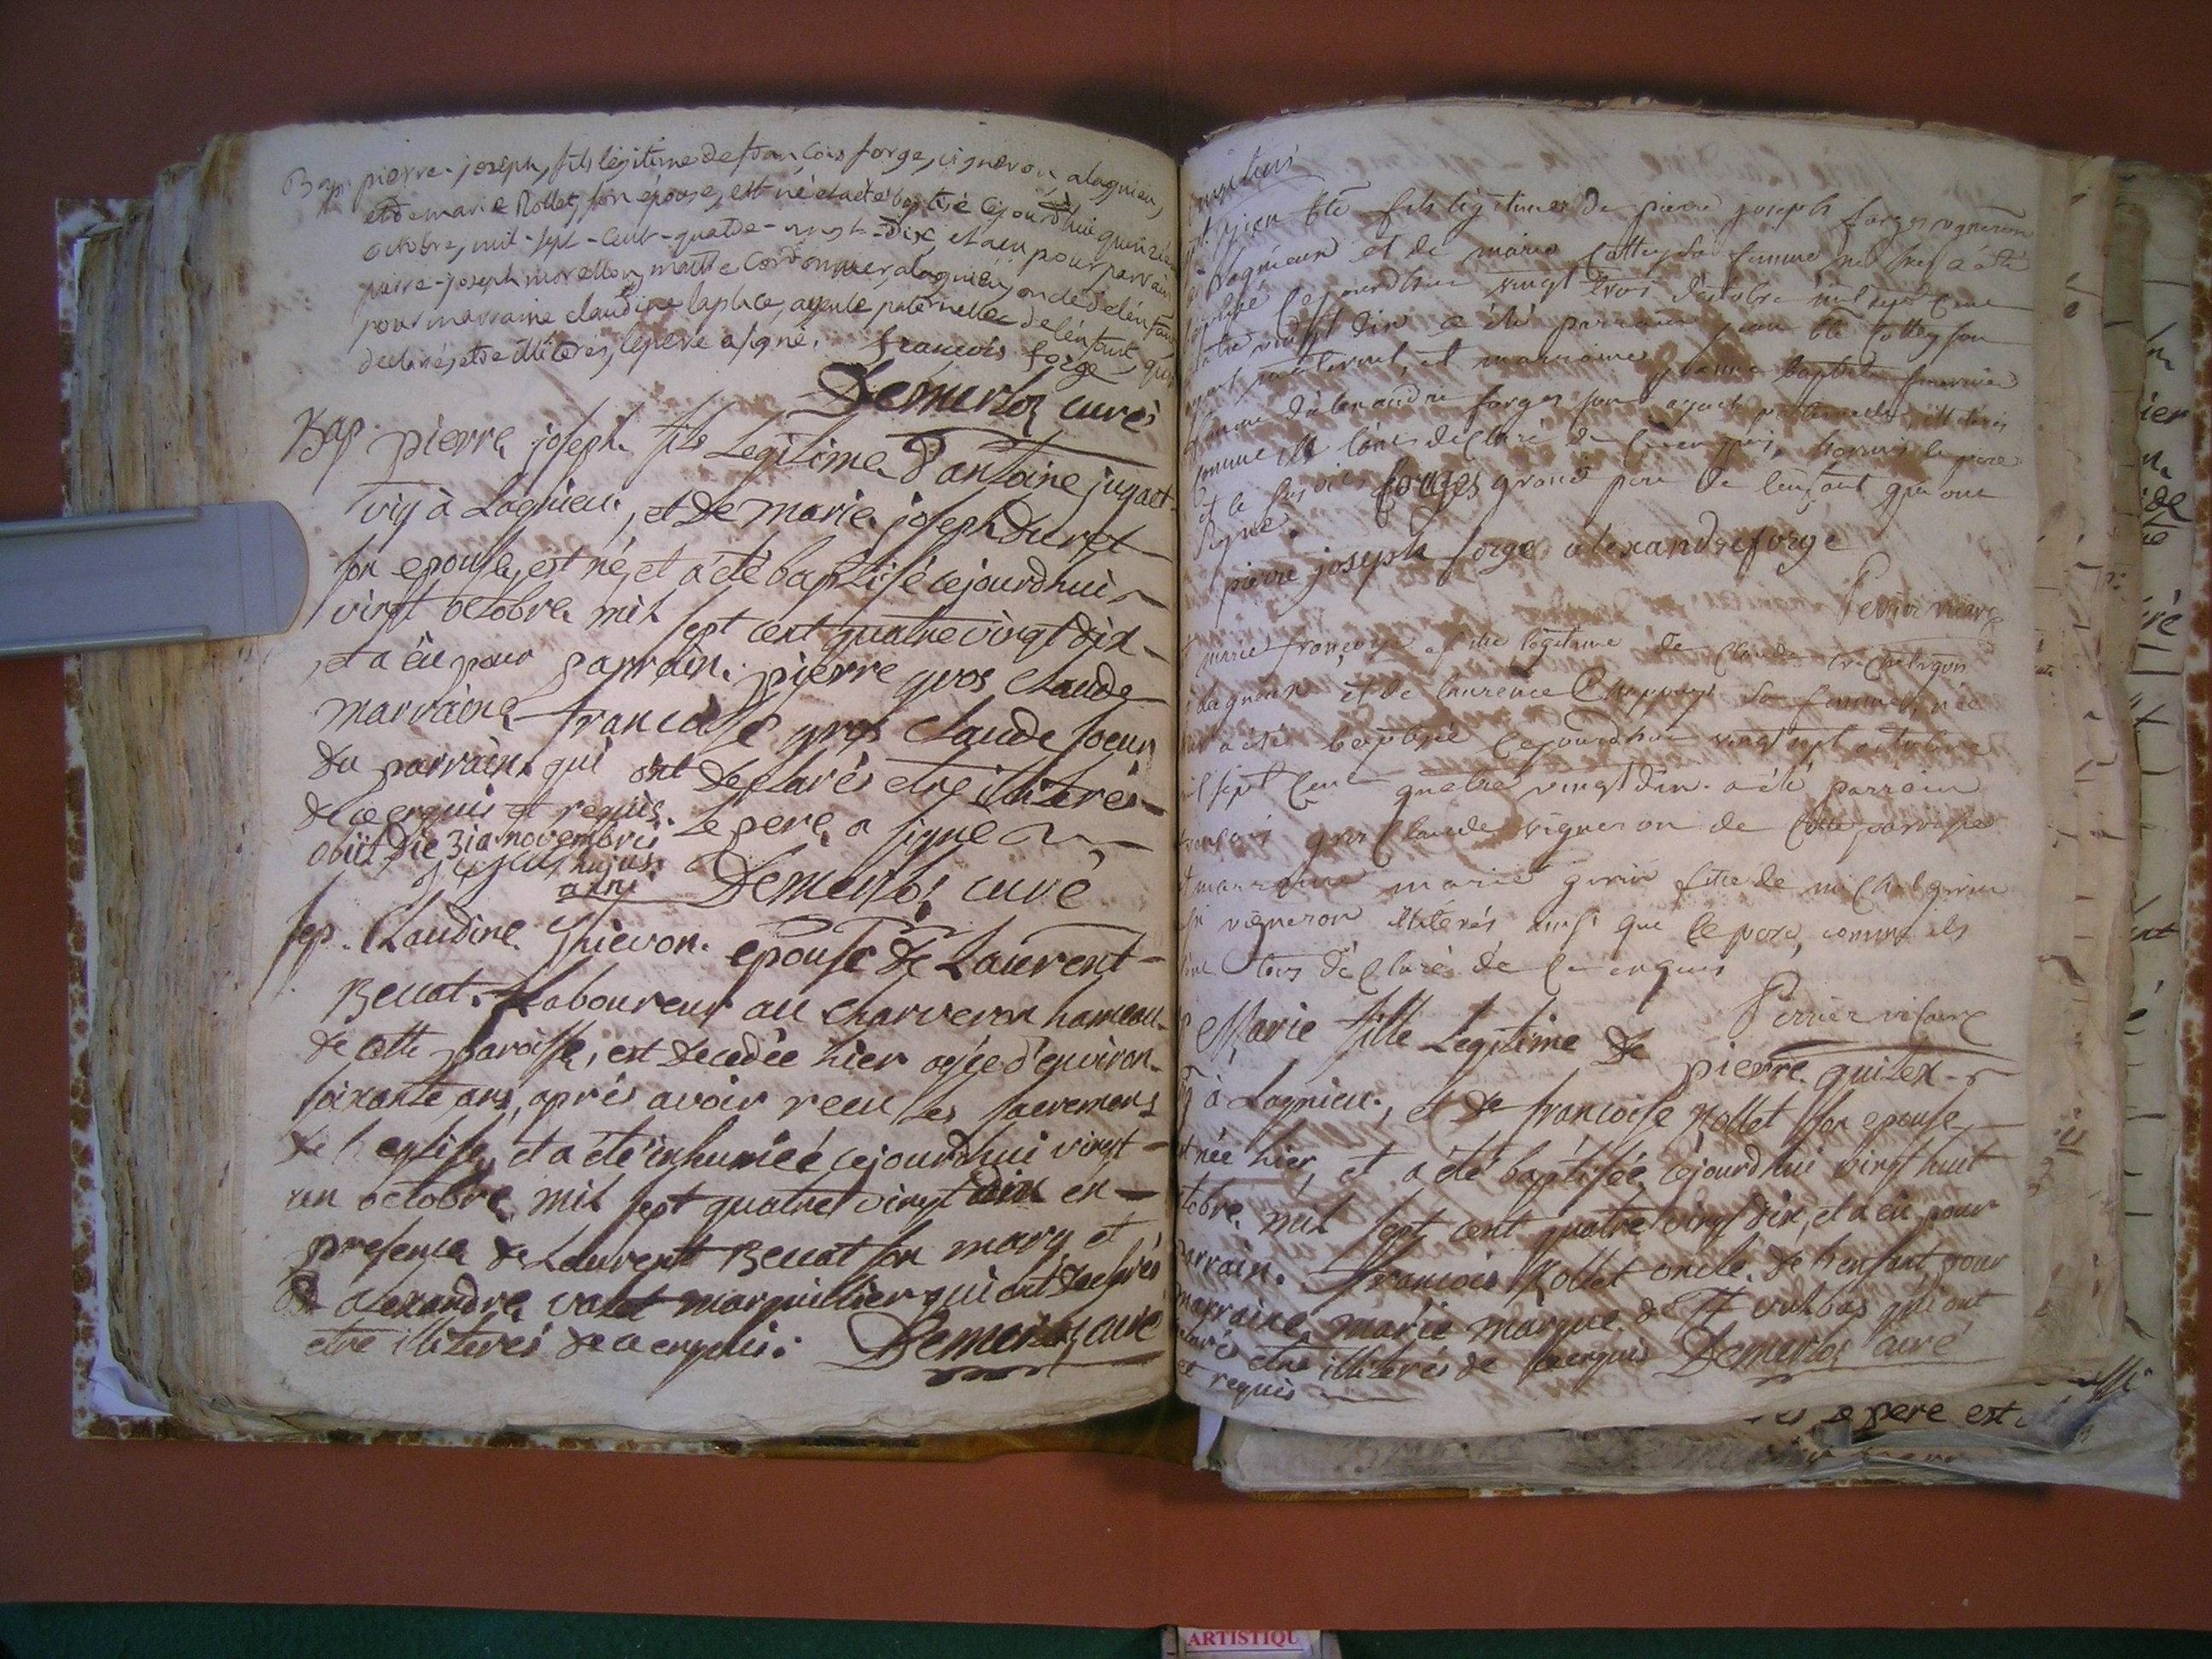 Bap. pierre-joseph, fils légitime de françois forge, vigneron, a lagnieu,
et de marie Rollet, son epouse, est né et a eté baptisé cejourd'hui quinzieme
octobre, mil-sept-cent-quatre-vingt-dix, et a eu pour parrain
pierre-joseph morellon, maitre cordonnier, a lagnieu, oncle de l'enfant
pour marraine claudine laplace, ayeule paternelle de l'enfant, qui
declarés etre illiterés, le pere a signé. francois forge
Demerloz curé
Bap. pierre joseph fils Legitime D'antoine jugaet
vig à Lagnieu, et De marie joseph Duret
son epouse, est né, et a eté baptisé cejourdhui
vingt octobre mil sept cent quatre vingt dix
, et a eu pour parrain pierre gros claude
marraine francoise gros claude soeur
du parrain qui ont declarés etre illiterés
de ce enquis et requis. Le pere a signé
obiit die 31a novembris
hujus
anni Demerloz curé
sep. Claudine Thievon epouse de Laurent
Benat Laboureur au charveron hameau
de cette paroisse, est decedée hier agée d'environ
soixante ans, aprés avoir recu les sacremens
de l'eglise, et a eté inhumée cejourdhui vingt
un octobre mil sept quatre vingt dix en
presence de Laurent Benat son mary et
de alexandre valet marguillier qui ont declarés
etre illiterés de ce enquis. Demerloz curé
jean bte fils légitime de pierre joseph forges vigneron
lagnieux et de marie cottey sa femme né hier a été
cejourd'huy vingt trois d'octobre mil sept cent
quatre vingt dix a été parrain jean bte cottey son
paternel, et marraine jeanne baptiste fournier
femme d'alexandre forges son ayeule paternelle illiterés
comme ils l'ont déclaré de ce enquis, hormis le pere
et le susdit forges grand pere de l'enfant qui ont
signé.
pierre joseph forge alexandre forge
Perrier vicaire
marie françoise fille légitime de claude
lagnieux et de laurence Chappuy sa femme, née
a été baptisée cejourd'huy vingt sept octobre
mil sept cent quatre vingt dix a été parrain
françois gros claude vigneron de cette paroisse
et marraine marie girin fille de michel girin
vigneron illiterés ainsi que le pere, comme ils
tous déclaré de ce enquis
Perrier vicaire
Marie fille Legitime De pierre guilex
à Lagnieu, et de francoise Rollet son epouse
née hier, et a été baptisée cejourdhui vingt huit
octobre mil sept cent quatre vingt dix, et a eu pour
parrain francois Rollet oncle de l'enfant, pour
marraine marie marque de St vulbas qui ont
declarés etre illiterés de ce enquis Demerloz curé
et requis
pere est
ARTISTIQU